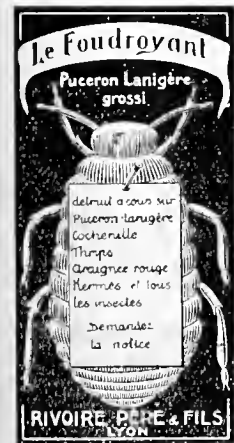 Le Foudroyant
Puceron Lanigère
grossi
détruit à coup sûr
Puceron lanigère
Cochenille
Thrips
Araignée rouge
Kermès et tous
les insectes
Demandez
la notice
RIVOIRE PÈRE & FILS
LYON